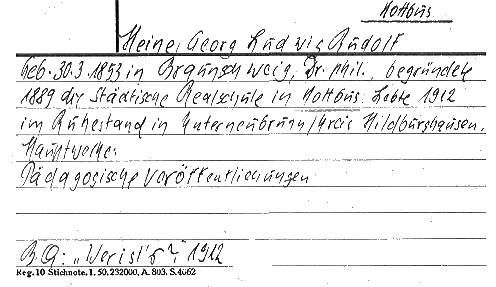 Kottbus
Heine, Georg Ludwig Rudolf
geb. 30.3.1853 in Braunschweig, Dr. phil., begründete
1889 die Städtische Realschule in Kottbus. Lebte 1912
im Ruhestand in Unterneubrunn/Kreis Hildburghausen.
Hauptwerke:
Pädagogische Veröffentlichungen
B.Q: „Wer ist's?", 1912
Reg. 10 Stichnote. 1, 50, 232000, A. 803. S. 4662